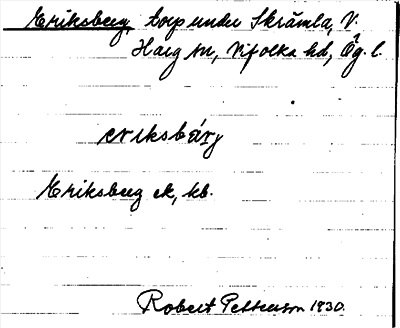 Eriksberg, torp under Skrämla, V.
Harg sn, Vifolka hd, Ög. l.
eriksbärj
Eriksberg ek, kb.
Robert Petterson 1930.